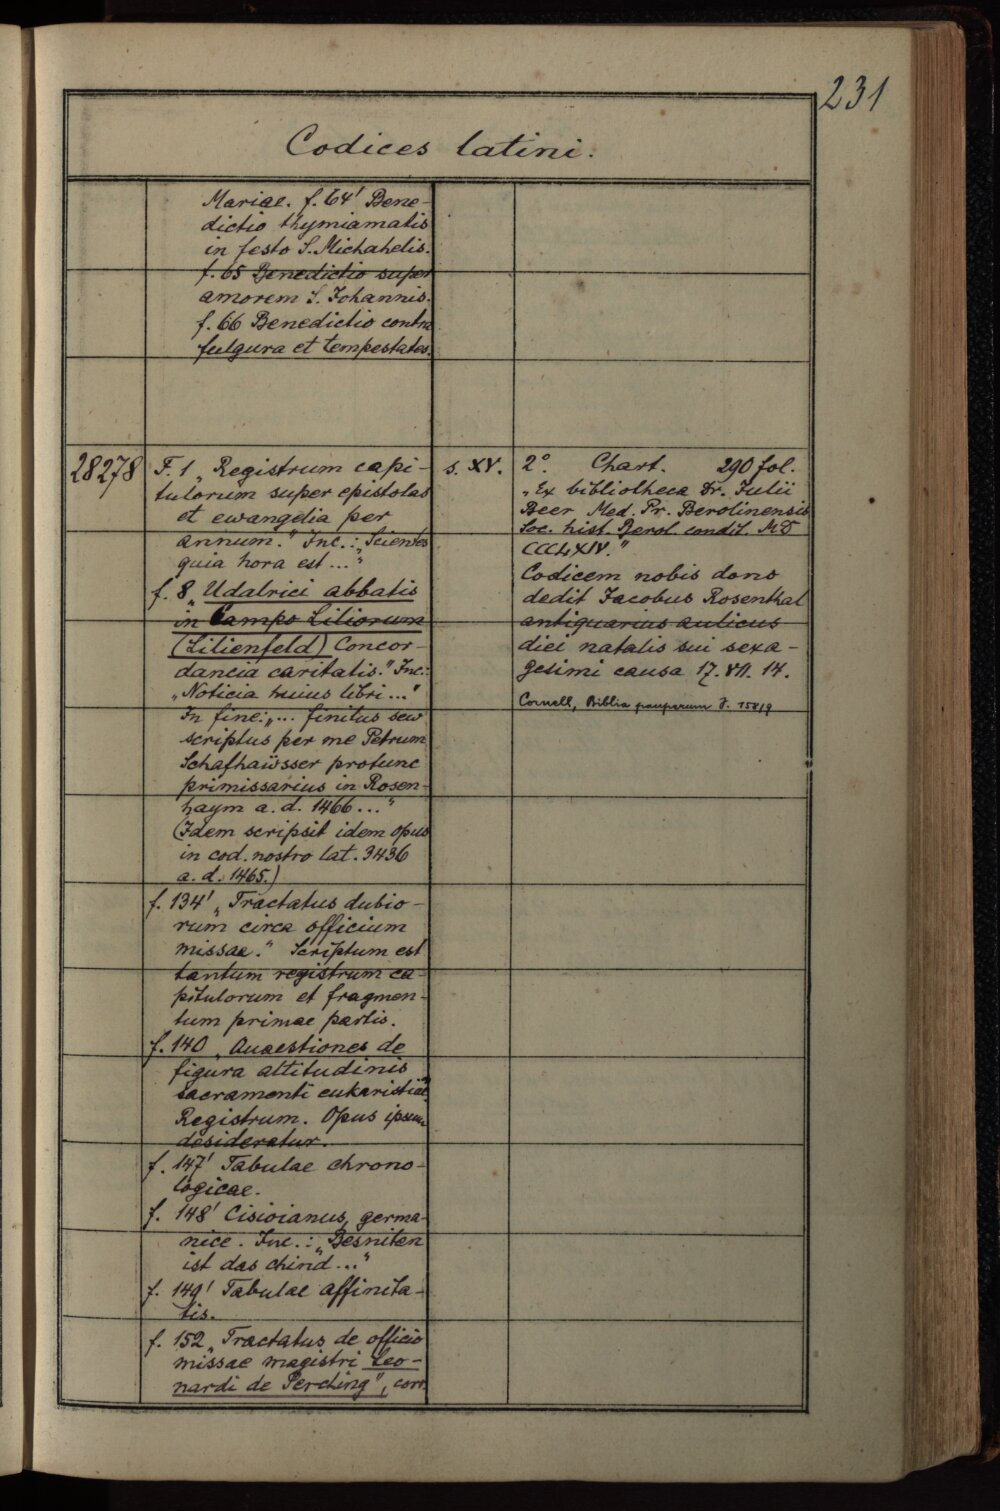 231
Codices latini.
Mariae. f. 64' Bene-
dictio thymiamatis
in festo S. Michahelis.
f. 65 Benedictio super
amorem S. Johannis.
f. 66 Benedictio contra
fulgura et tempestates.
28278
F. 1 „Registrum capi-
tulorum super epistolas
et ewangelia per
annum.“ Inc.: „Scientes
quia hora est ...“
f. 8 „Udalrici abbatis
in Campo Liliorum
(Lilienfeld) Concor-
dancia caritatis.“ Inc.:
„Noticia huius libri ...“
In fine: „... finitus seu
scriptus per me Petrum
Schafhaüsser protunc
primissarius in Rosen-
haym a. d. 1466 ...“
(Idem scripsit idem opus
in cod. nostro lat. 3436
a. d. 1465.)
f. 134' „Tractatus dubio-
rum circa officium
missae.“ Scriptum est
tantum registrum ca-
pitulorum et fragmen-
tum primae partis.
f. 140 „Quaestiones de
figura altitudinis
sacramenti eukaristiae“
Registrum. Opus ipsum
desideratur.
f. 147' Tabulae chrono-
logicae.
f. 148' Cisioianus, germa-
nice. Inc.: „Besniten
ist das chind ...“
f. 149' Tabulae affinita-
tis.
f. 152 „Tractatus de officio
missae magistri Leo-
nardi de Perching“, com
s. XV.
2°. Chart. 290 fol.
„Ex bibliotheca Dr. Julii
Beer Med. Pr. Berolinensis
Soc. hist. Berol. condit. MD
CCCLXIV.“
Codicem nobis dono
dedit Jacobus Rosenthal
antiquarius aulicus
diei natalis sui sexa-
gesimi causa 17. VII. 14.
Cornell, Biblia pauperum S. 158/9